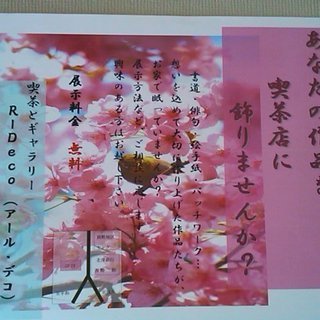 あなたの作品を
喫茶店に
飾りませんか？
書道 俳句 絵手紙 パッチワーク…
想いを込めて大切に作り上げた作品たちが、
お家で眠っていませんか？
展示方法など、ご相談に応じます。
興味のある方はお越し下さい
展示料金 無料
喫茶とギャラリー
RIDeco （アール・デコ）